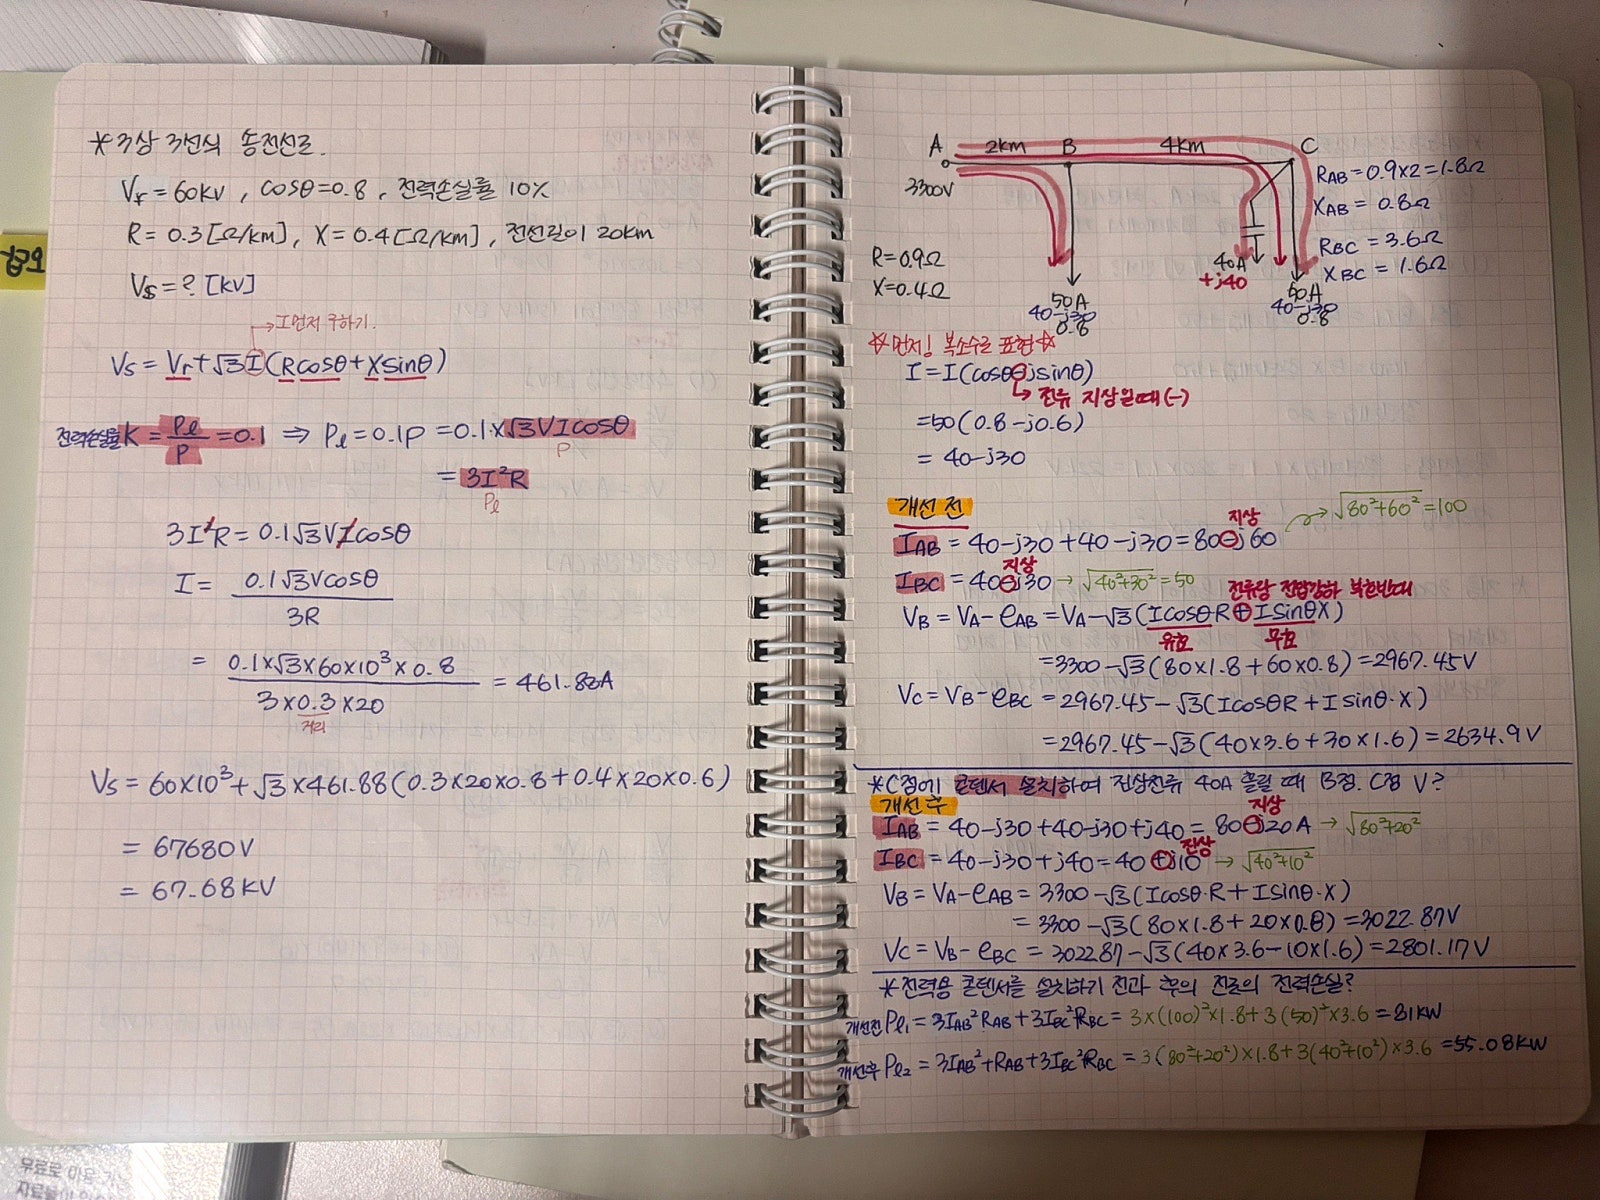 요점
*3상 3선식 송전선로.
Vr = 60KV , cosθ=0.8 , 전력손실률 10%
R = 0.3[Ω/km], X = 0.4[Ω/km] , 전선길이 20km
Vs = ? [KV]
→I먼저 구하기.
Vs = Vr+√3I(Rcosθ+Xsinθ)
전력손실률 K = Pℓ/P = 0.1 ⇒ Pℓ = 0.1P = 0.1×√3VIcosθ
P
= 3I²R
Pℓ
3I²R = 0.1√3VIcosθ
I = 0.1√3Vcosθ / 3R
= 0.1×√3×60×10³×0.8 / 3×0.3×20 = 461.88A
거리
Vs = 60×10³+√3×461.88(0.3×20×0.8+0.4×20×0.6)
= 67680V
= 67.68KV
A 2km B 4km C
3300V
R = 0.9Ω
X = 0.4Ω
50A
40-j30
0.8
40A
+j40
50A
40-j30
0.8
RAB = 0.9×2=1.8Ω
XAB = 0.8Ω
RBC = 3.6Ω
XBC = 1.6Ω
☆먼저! 복소수로 표현☆
I = I(cosθ-jsinθ)
↳ 전류 지상일때(-)
=50(0.8-j0.6)
= 40-j30
개선 전
지상
IAB = 40-j30+40-j30 = 80-j60 → √80²+60² = 100
지상
IBC = 40-j30 → √40²+30² = 50
전류랑 전압강하 부호반대
VB = VA-eAB = VA-√3(Icosθ·R+IsinθX)
유효 무효
=3300-√3(80×1.8+60×0.8) = 2967.45V
VC = VB-eBC = 2967.45-√3(IcosθR+Isinθ·X)
=2967.45-√3(40×3.6+30×1.6) = 2634.9V
*C점에 콘덴서 설치하여 진상전류 40A 흘릴 때 B점. C점 V?
개선 후
지상
IAB = 40-j30+40-j30+j40 = 80-j20A → √80²+20²
진상
IBC = 40-j30+j40 = 40+j10 → √40²+10²
VB = VA-eAB = 3300-√3(Icosθ·R+Isinθ·X)
= 3300-√3(80×1.8+20×0.8) = 3022.87V
VC = VB-eBC = 3022.87-√3(40×3.6-10×1.6) = 2801.17V
*전력용 콘덴서를 설치하기 전과 후의 선로의 전력손실?
개선전 Pℓ1 = 3IAB²RAB+3IBC²RBC = 3×(100)²×1.8+3(50)²×3.6 = 81KW
개선후 Pℓ2 = 3IAB²+RAB+3IBC²RBC = 3(80²+20²)×1.8+3(40²+10²)×3.6 = 55.08KW
유료로 이용 가